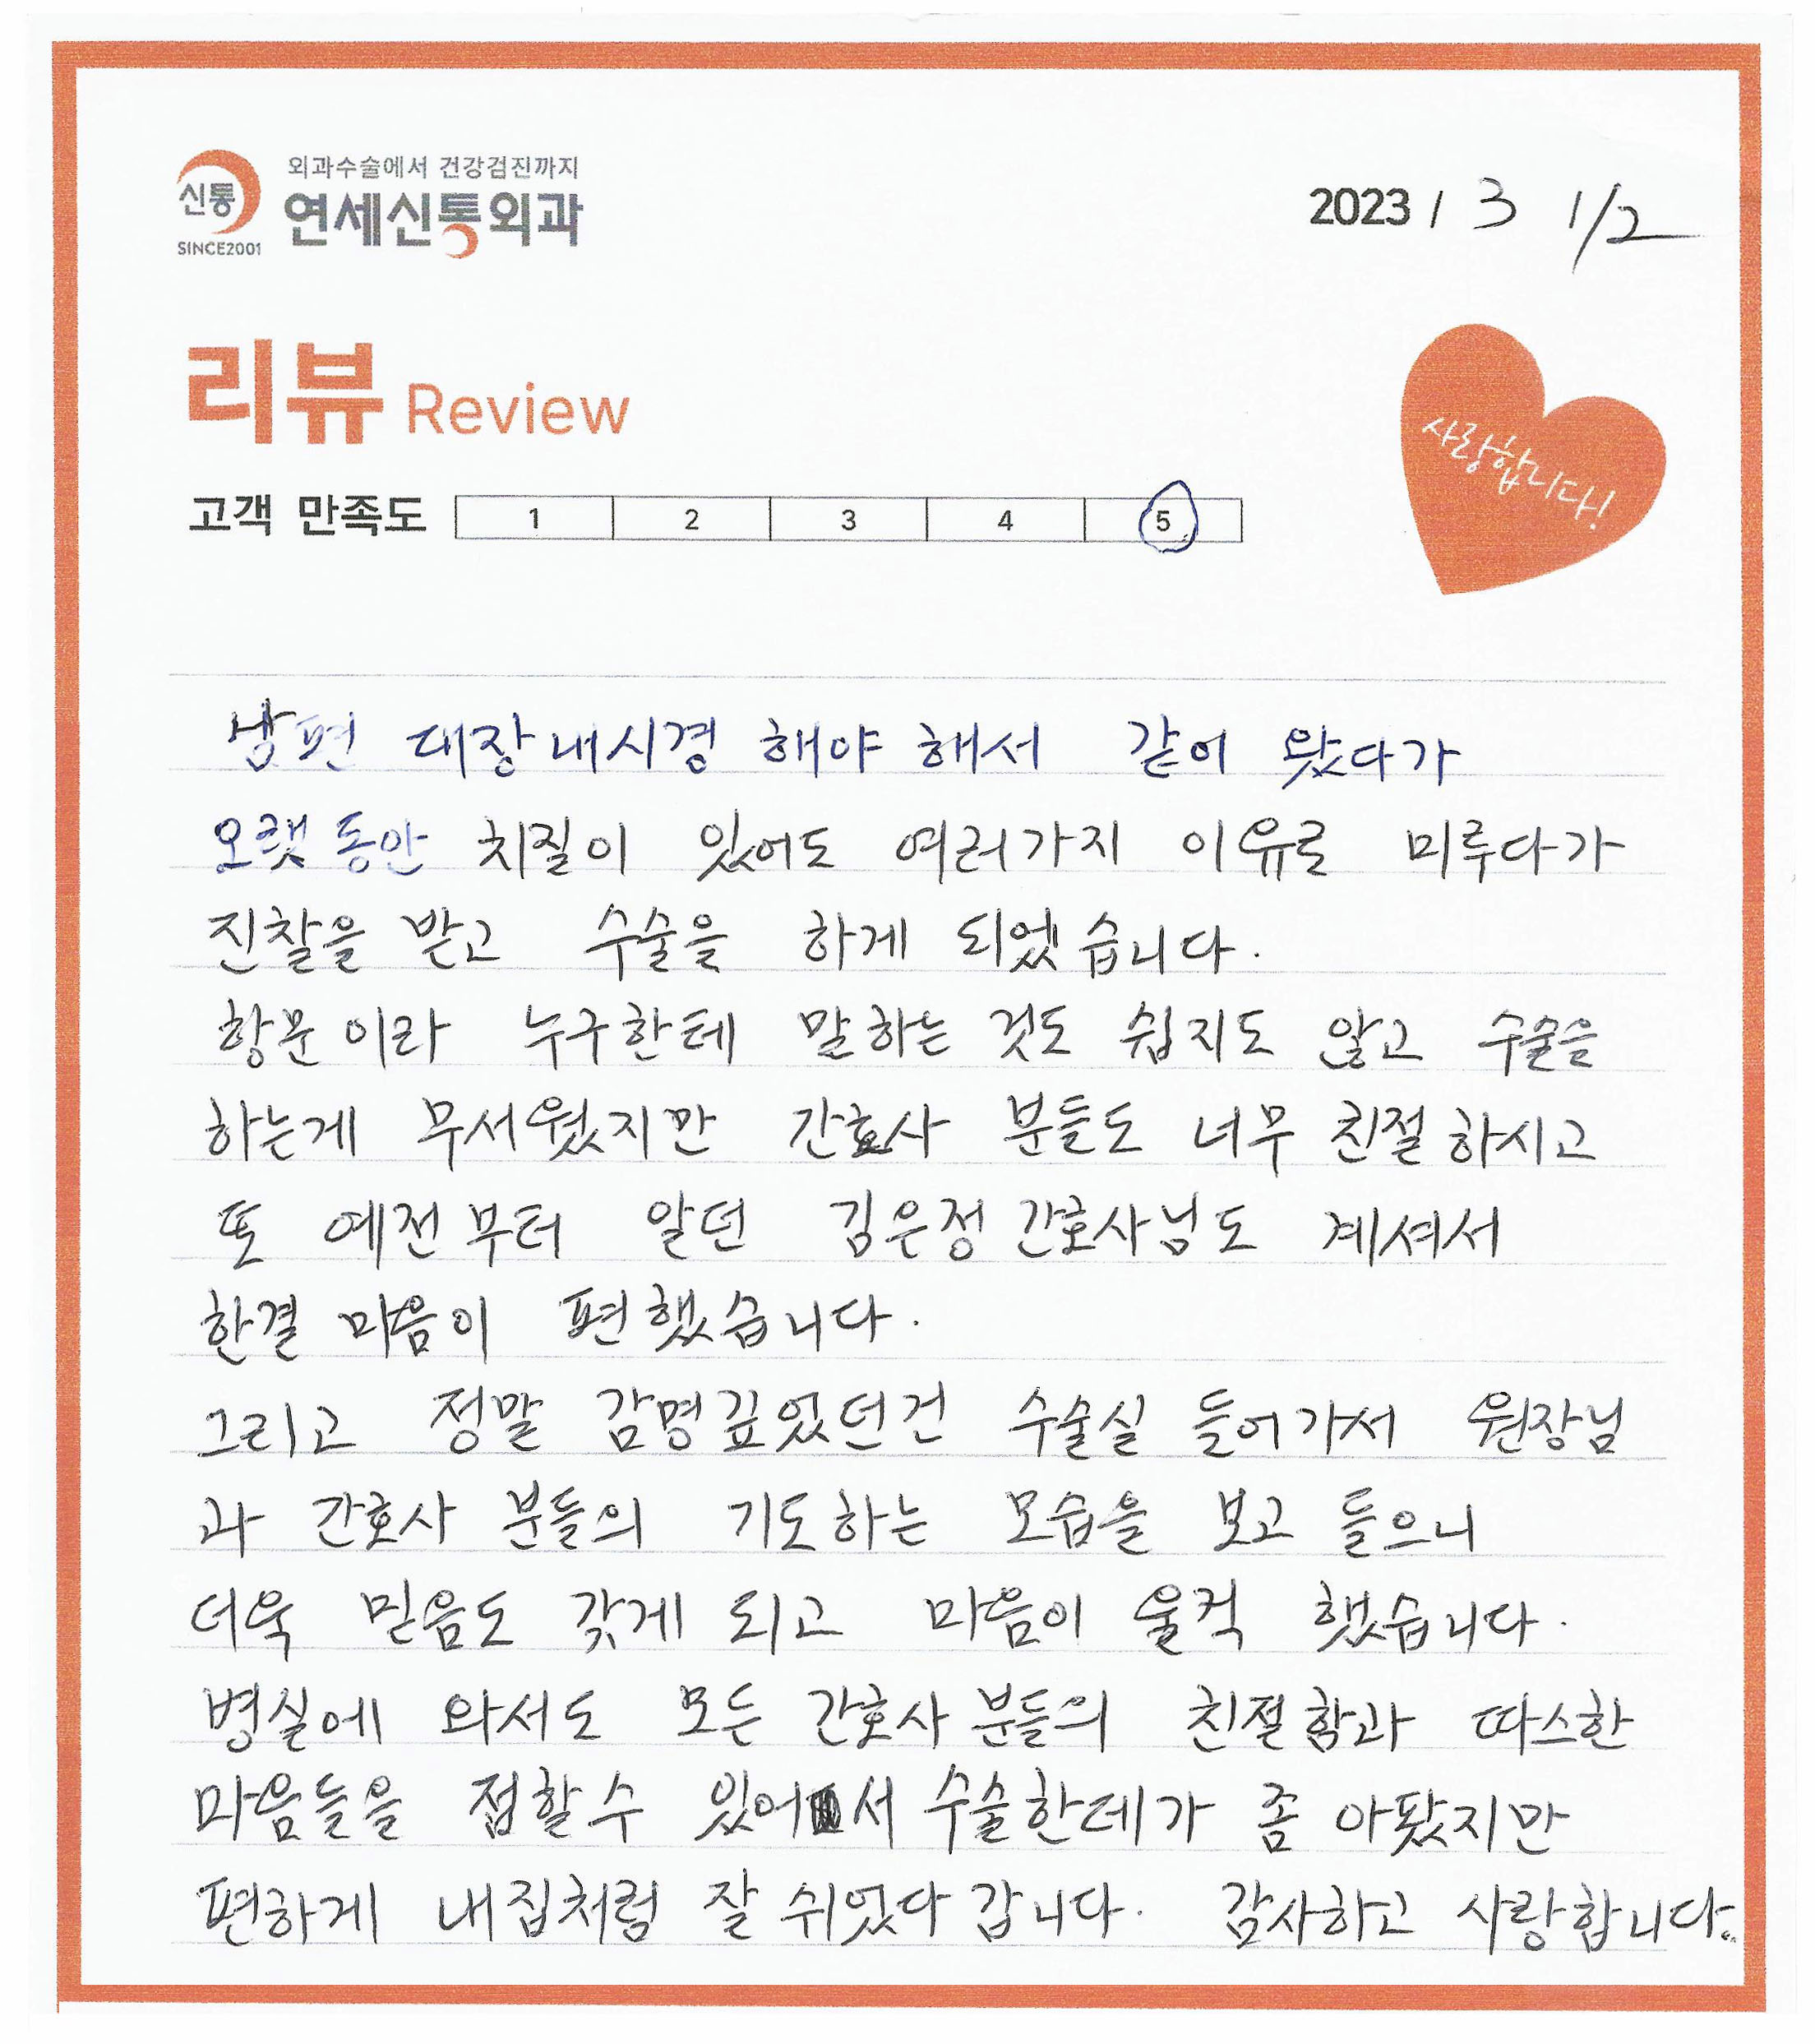 외과수술에서 건강검진까지
신통
연세신통외과
SINCE2001
2023 / 3 1/2
리뷰 Review
사랑합니다!
고객 만족도 1 2 3 4 5
남편 대장내시경 해야 해서 같이 왔다가
오랫동안 치질이 있어도 여러가지 이유로 미루다가
진찰을 받고 수술을 하게 되었습니다.
항문이라 누구한테 말하는 것도 쉽지도 않고 수술을
하는게 무서웠지만 간호사 분들도 너무 친절하시고
또 예전부터 알던 김은정 간호사님도 계셔서
한결 마음이 편했습니다.
그리고 정말 감명깊었던건 수술실 들어가서 원장님
과 간호사 분들의 기도하는 모습을 보고 들으니
더욱 믿음도 갖게 되고 마음이 울컥 했습니다.
병실에 와서도 모든 간호사 분들의 친절함과 따스한
마음들을 접할수 있어서 수술한데가 좀 아팠지만
편하게 내집처럼 잘 쉬었다 갑니다. 감사하고 사랑합니다.